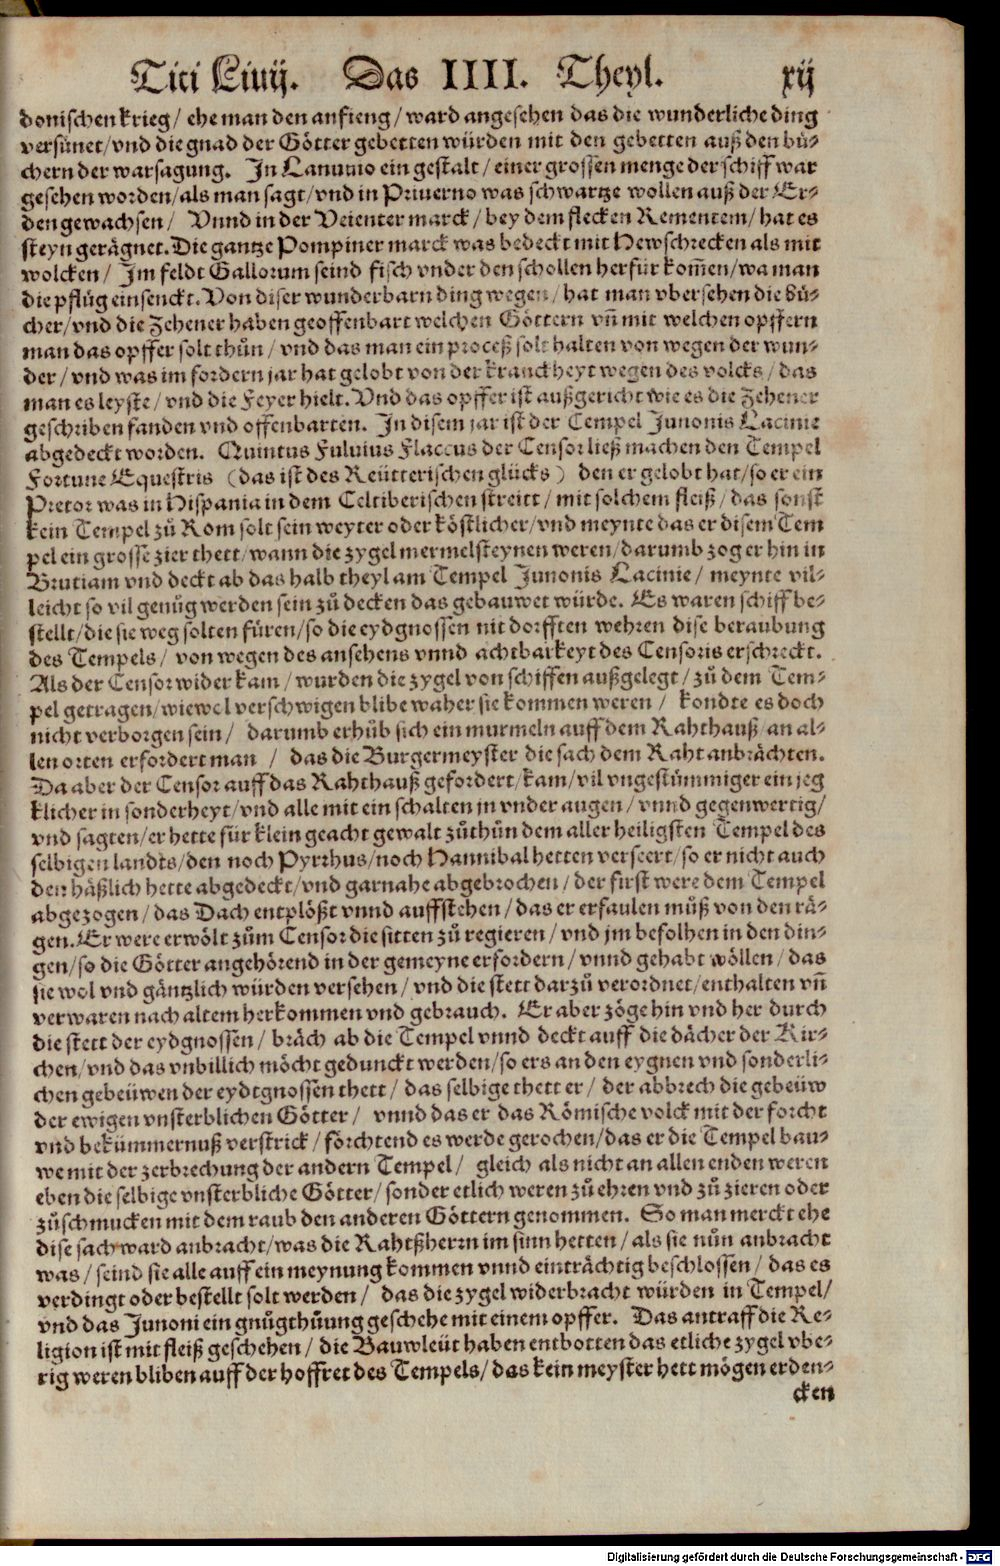 Titi Liuij. Das IIII. Theyl. xij
donischen krieg/ ehe man den anfieng/ ward angesehen das die wunderliche ding
versünet/vnd die gnad der Götter gebetten würden mit den gebetten auß den bü-
chern der warsagung. In Lanuuio ein gestalt/ einer grossen menge der schiff war
gesehen worden/als man sagt/vnd in Priuerno was schwartze wollen auß der Er-
den gewachsen/ Vnnd in der Veienter marck/ bey dem flecken Rementem/ hat es
steyn gerägnet. Die gantze Pompiner marck was bedeckt mit Hewschrecken als mit
wolcken/ Im feldt Gallorum seind fisch vnder den schollen herfür kom̃en/wa man
die pflüg einsenckt. Von diser wunderbarn ding wegen/ hat man vbersehen die Bü-
cher/vnd die Zehener haben geoffenbart welchen Göttern vñ mit welchen opffern
man das opffer solt thůn/ vnd das man ein proceß solt halten von wegen der wun-
der/ vnd was im fordern jar hat gelobt von der kranckheyt wegen des volcks/ das
man es leyste/ vnd die Feyer hielt. Vnd das opffer ist außgericht wie es die Zehener
geschriben fanden vnd offenbarten. In disem jar ist der Tempel Junonis Lacinie
abgedeckt worden. Quintus Fuluius Flaccus der Censor ließ machen den Tempel
Fortune Equestris (das ist des Reütterischen glücks) den er gelobt hat/ so er ein
Pretor was in Hispania in dem Celtiberischen streitt/ mit solchem fleiß/ das sonst
kein Tempel zů Rom solt sein weyter oder köstlicher/vnd meynte das er disem Tem
pel ein grosse zier thett/wann die zygel mermelsteynen weren/darumb zog er hin in
Brutiam vnd deckt ab das halb theyl am Tempel Junonis Lacinie/ meynte vil-
leicht so vil genůg werden sein zů decken das gebauwet würde. Es waren schiff be-
stellt/die sie weg solten füren/so die eydgnossen nit dorfften wehren dise beraubung
des Tempels/ von wegen des ansehens vnnd achtbarkeyt des Censoris erschreckt.
Als der Censor wider kam/ wurden die zygel von schiffen außgelegt/ zů dem Tem-
pel getragen/wiewol verschwigen blibe waher sie kommen weren/ kondte es doch
nicht verborgen sein/ darumb erhůb sich ein murmeln auff dem Rahthauß/an al-
len orten erfordert man / das die Burgermeyster die sach dem Raht anbrächten.
Da aber der Censor auff das Rahthauß gefordert/kam/vil vngestümmiger ein jeg
klicher in sonderheyt/vnd alle mit ein schalten jn vnder augen/ vnnd gegenwertig/
vnd sagten/er hette für klein geacht gewalt zůthůn dem aller heiligsten Tempel des
selbigen landts/den noch Pyrrhus/noch Hannibal hetten verseert/so er nicht auch
den häßlich hette abgedeckt/vnd garnahe abgebrochen/ der first were dem Tempel
abgezogen/das Dach entplößt vnnd auffstehen/das er erfaulen můß von den rä-
gen. Er were erwölt zům Censor die sitten zů regieren/ vnd jm befolhen in den din-
gen/so die Götter angehörend in der gemeyne erfordern/vnnd gehabt wöllen/ das
sie wol vnd gäntzlich würden versehen/ vnd die stett darzů verordnet/enthalten vñ
verwaren nach altem herkommen vnd gebrauch. Er aber zöge hin vnd her durch
die stett der eydgnossen/ bräch ab die Tempel vnnd deckt auff die dächer der Kir-
chen/vnd das vnbillich möcht gedunckt werden/so ers an den eygnen vnd sonderli-
chen gebeüwen der eydtgnossen thett/ das selbige thett er/ der abbrech die gebeüw
der ewigen vnsterblichen Götter/ vnnd das er das Römische volck mit der forcht
vnd bekümmernuß verstrick/ förchtend es werde gerochen/das er die Tempel bau-
we mit der zerbrechung der andern Tempel/ gleich als nicht an allen enden weren
eben die selbige vnsterbliche Götter/ sonder etlich weren zů ehren vnd zů zieren oder
zů schmucken mit dem raub den anderen Göttern genommen. So man merckt ehe
dise sach ward anbracht/was die Rahtßherrn im sinn hetten/ als sie nůn anbracht
was/ seind sie alle auff ein meynung kommen vnnd einträchtig beschlossen/ das es
verdingt oder bestellt solt werden/ das die zygel widerbracht würden in Tempel/
vnd das Junoni ein gnůgthůung geschehe mit einem opffer. Das antraff die Re-
ligion ist mit fleiß geschehen/ die Bauwleüt haben entbotten das etliche zygel vbe-
rig weren bliben auff der hoffret des Tempels/das kein meyster hett mögen erden-
cken
Digitalisierung gefördert durch die Deutsche Forschungsgemeinschaft - DFG